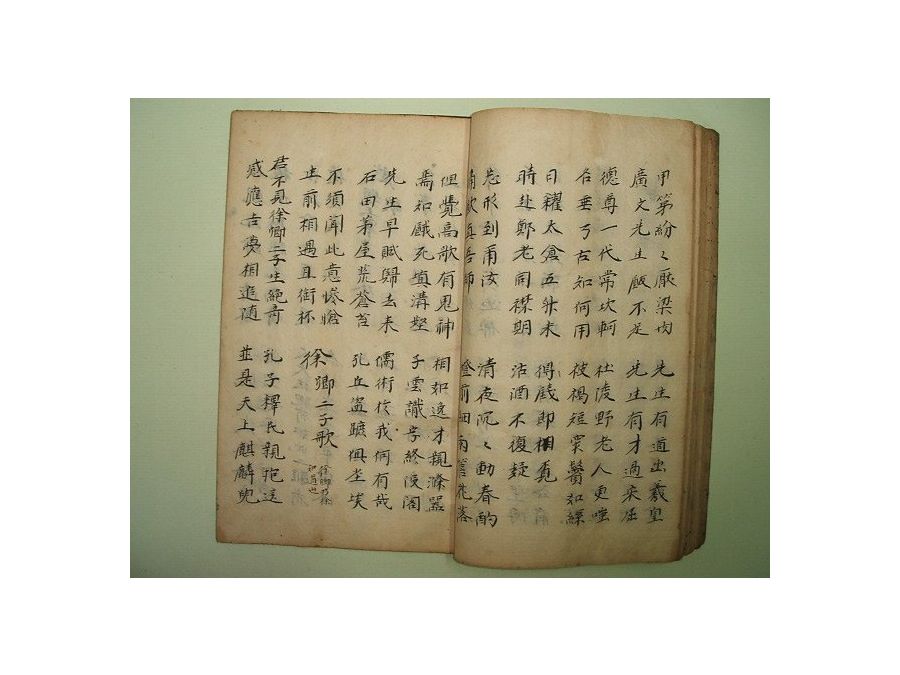 甲第紛〻厭梁肉 先生有道出羲皇
廣文先生飯不足 先生有才過宋屈
德尊一代常坎軻 杜陵野老人更嗤
名垂万古知何用 被褐短窄鬢如絲
日糴太倉五升米 得錢即相覓
時赴鄭老同襟期 沽酒不復疑
忘形到爾汝 清夜沉〻動春酌
痛飲真吾師 燈前細雨簷花落
但覺高歌有鬼神 相如逸才親滌器
焉知餓死填溝壑 子雲識字終投閣
先生早賦歸去来 儒術於我何有哉
石田茅屋荒蒼苔 孔丘盜蹠俱尘埃
不須聞此意慘愴
生前相遇且銜杯
徐卿二子歌 徐卿乃徐知道也
君不見徐卿二子生絕奇 孔子釋氏親抱送
感應吉夢相追隨 並是天上麒麟兒